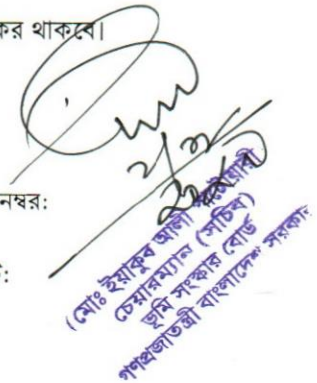 কর থাকবে।
নম্বর:
:
(মোঃ ইয়াকুব আলী
চেয়ারম্যান (সচিব)
ভূমি সংস্কার বোর্ড
গণপ্রজাতন্ত্রী বাংলাদেশ সরকার